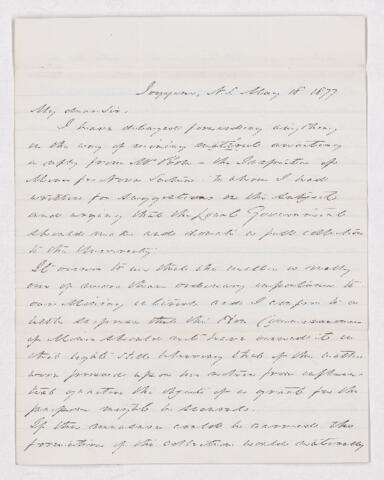 Joggins, N.S. May 18 1877
My dear Sir,
I have delayed forwarding anything
in the way of mining material awaiting
a reply from Mr Poole – the Inspector of
Mines for Nova Scotia – to whom I had
written for suggestions on the subject
and urging that the Local Government
should make and donate a full collection
to the University.
It occurs to me that the matter is really
one of more than ordinary importance to
our Mining interests and I confess to a
little surprise that the Hon. Commissioner
of Mines should not have viewed it in
that light. Still believing that if the matter
were pressed upon his notice from influen-
tial quarters the object of a grant for the
purpose might be secured.
If this measure could be carried the
formation of the collection would naturally